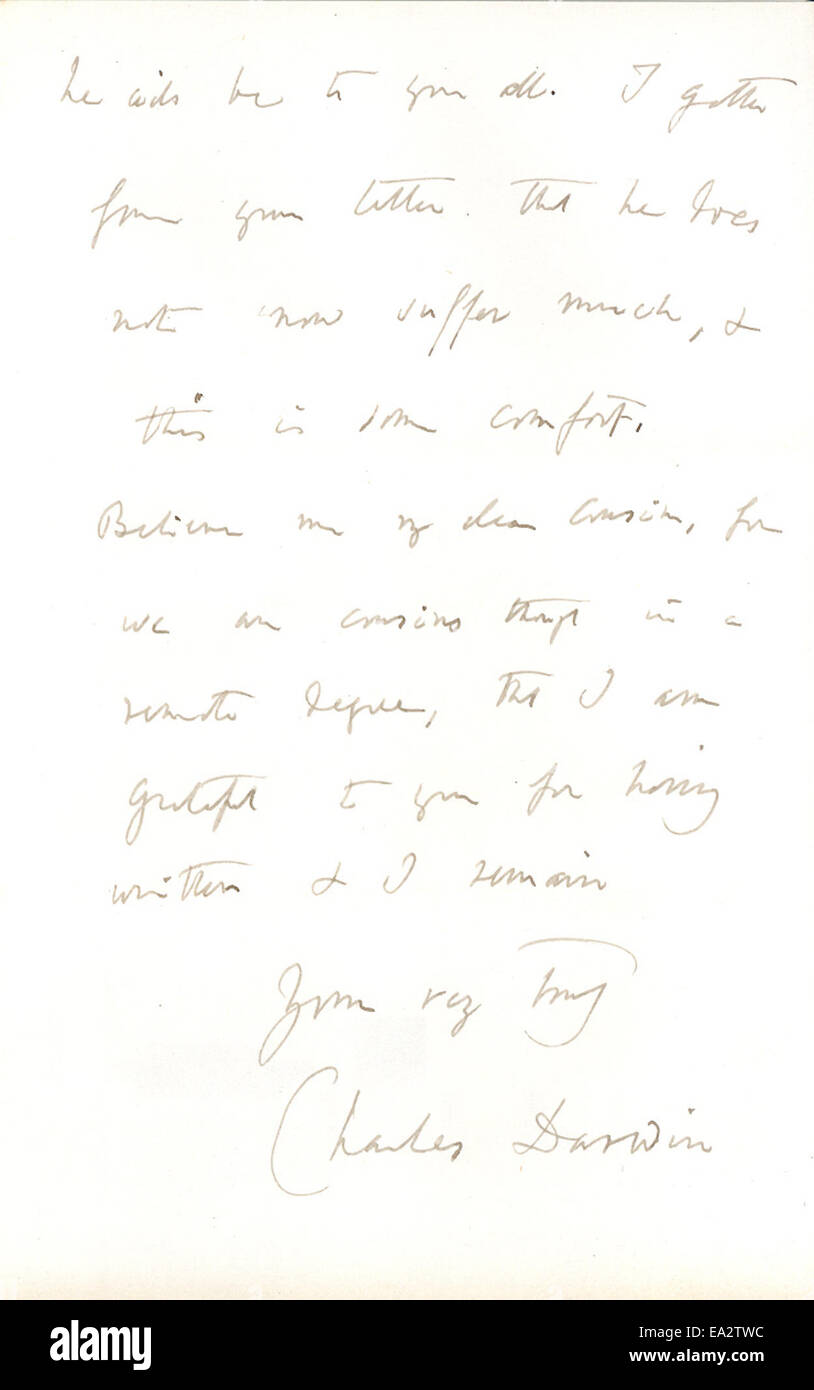 he be to you all. I gather
from your letter that he does
not now suffer much, &
this is some comfort.
Believe me my dear Cousin, for
we are cousins though in a
remote degree, that I am
grateful to you for having
written & I remain
Yours very truly
Charles Darwin
alamy
Image ID: EA2TWC
www.alamy.com